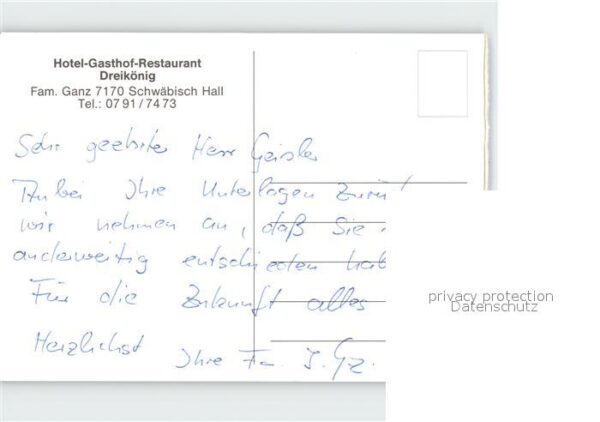 Hotel-Gasthof-Restaurant
Dreikönig
Fam. Ganz 7170 Schwäbisch Hall
Tel.: 07 91 / 74 73
Sehr geehrter Herr Geisler
Anbei Ihre Unterlagen zurück
wir nehmen an, daß Sie
anderweitig entschieden hab
Für die Zukunft alles
Herzlichst Ihre Fa.
privacy protection
Datenschutz